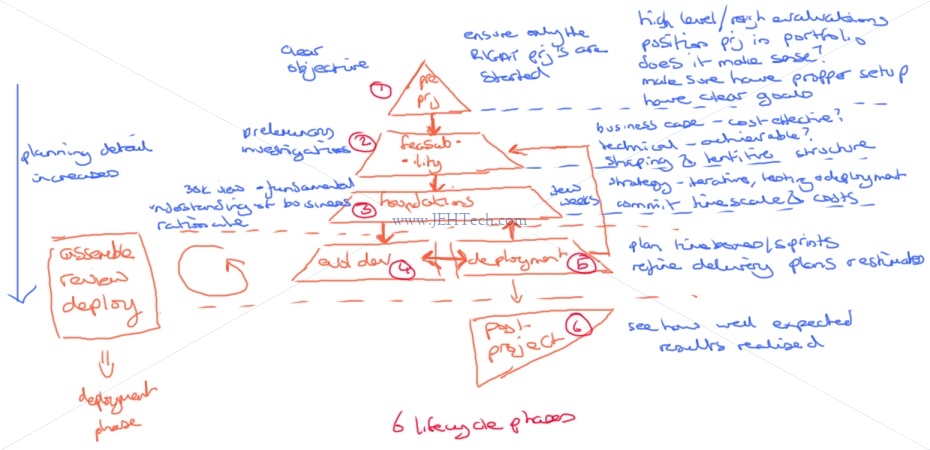 clear
objective
ensure only the
RIGHT prj's are
started
high level/rough evaluations
position prj in portfolio
does it make sense?
make sure have propper setup
have clear goals
①
pre
prj
planning detail
increases
preliminary
investigations
②
feasub-
-ility
business case - cost effective?
technical - achievable?
shaping & tentitive structure
30k view - fundamental
understanding of business
rationale
③
foundations
few
weeks
strategy - iterative, testing + deployment
commit timescale & costs
www.JEHTech.com
assemble
review
deploy
evol dev
④
deployment
⑤
plan timeboxes/sprints
refine delivery plans + estimates
post
project
⑥
see how well expected
results realised
deployment
phase
6 lifecycle phases